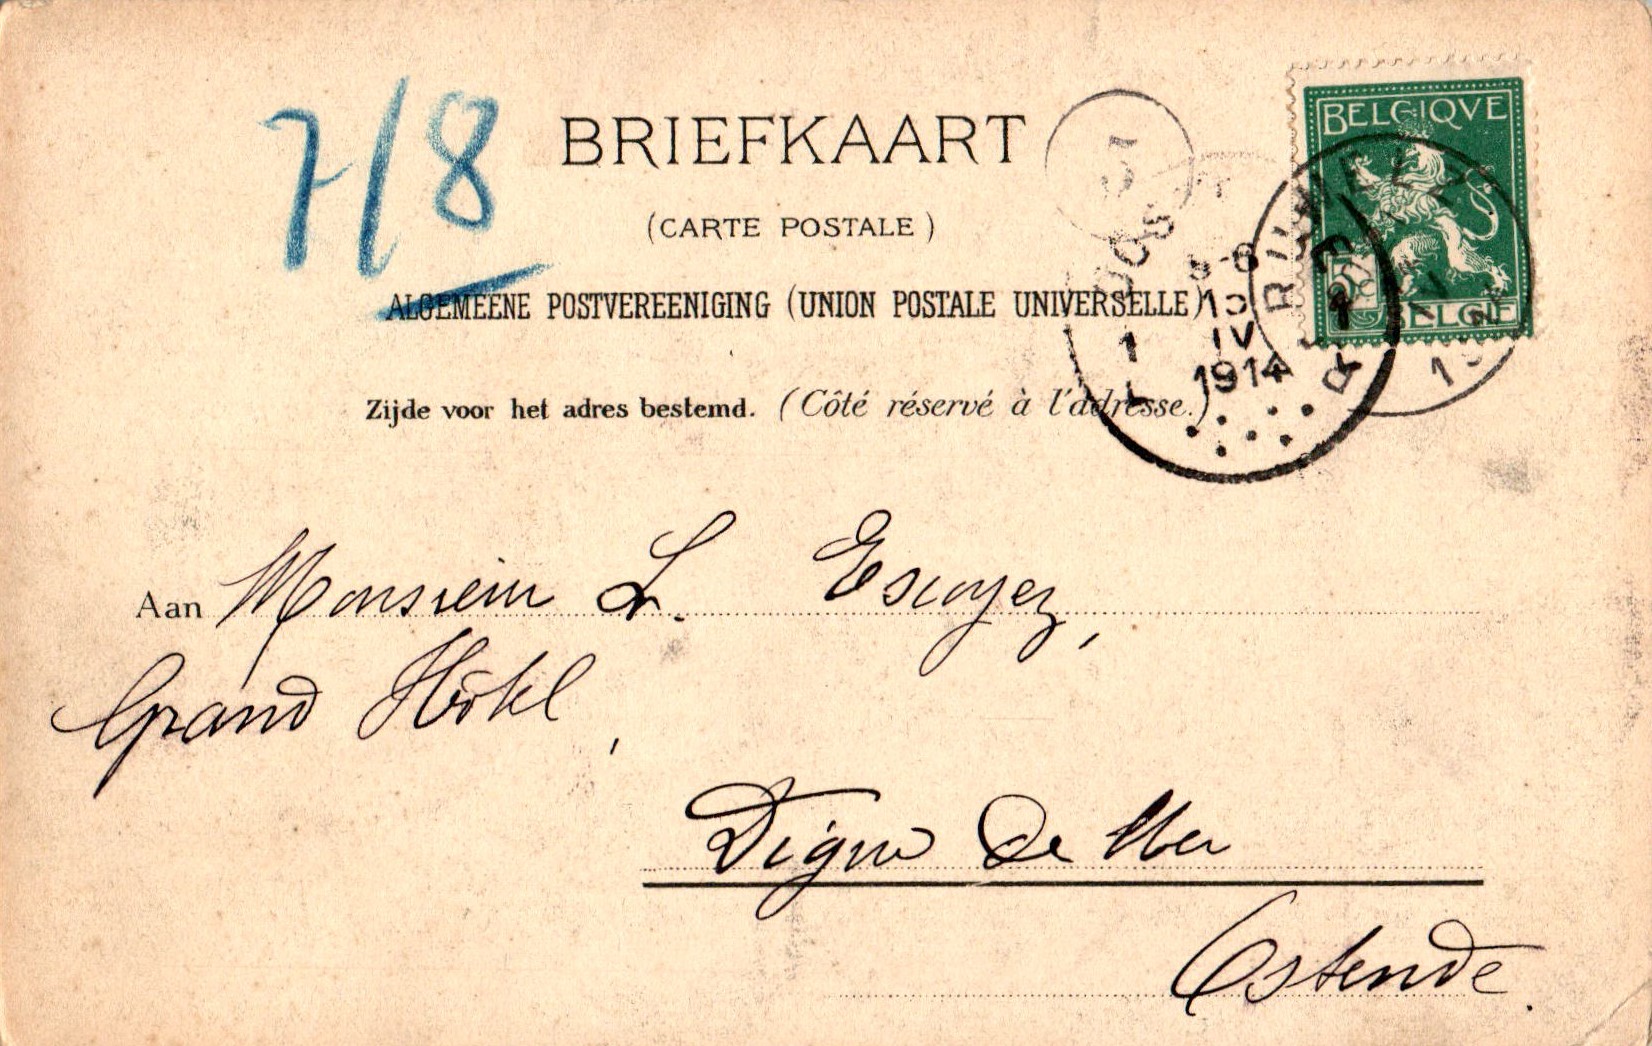 7/8
BRIEFKAART
(CARTE POSTALE)
ALGEMEENE POSTVEREENIGING (UNION POSTALE UNIVERSELLE)
Zijde voor het adres bestemd. (Côté réservé à l'adresse.)
BELGIQVE
5
BELGIË
10
IV
1914
Aan Monsieur L. Escoyez,
Grand Hôtel,
Digue de Mer
Ostende.